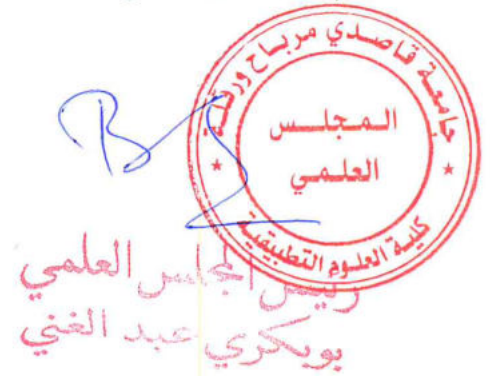 جامعة قاصدي مرباح ورقلة
المجلس
العلمي
كلية العلوم التطبيقية
رئيس المجلس العلمي
بوبكري عبد الغني